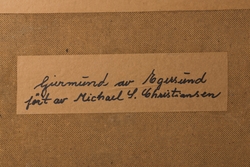 Geirmund av Egersund
ført av Michael S. Christiansen